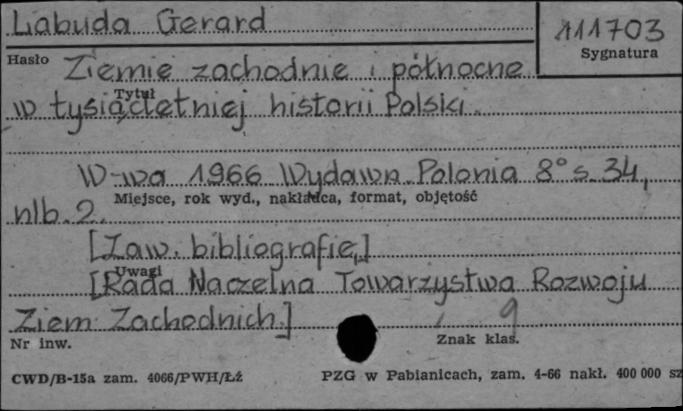 Labuda Gerard
111703
Hasło
Sygnatura
Ziemie zachodnie i północne
Tytuł
w tysiącletniej historii Polski.
W-wa 1966 Wydawn. Polonia 8° s. 34,
Miejsce, rok wyd., nakładca, format, objętość
nlb. 2.
[Zaw. bibliografię.]
Uwagi
[Rada Naczelna Towarzystwa Rozwoju
Ziem Zachodnich.]
9
Nr inw.
Znak klas.
CWD/B-15a zam. 4066/PWH/Łź
PZG w Pabianicach, zam. 4-66 nakł. 400 000 sz